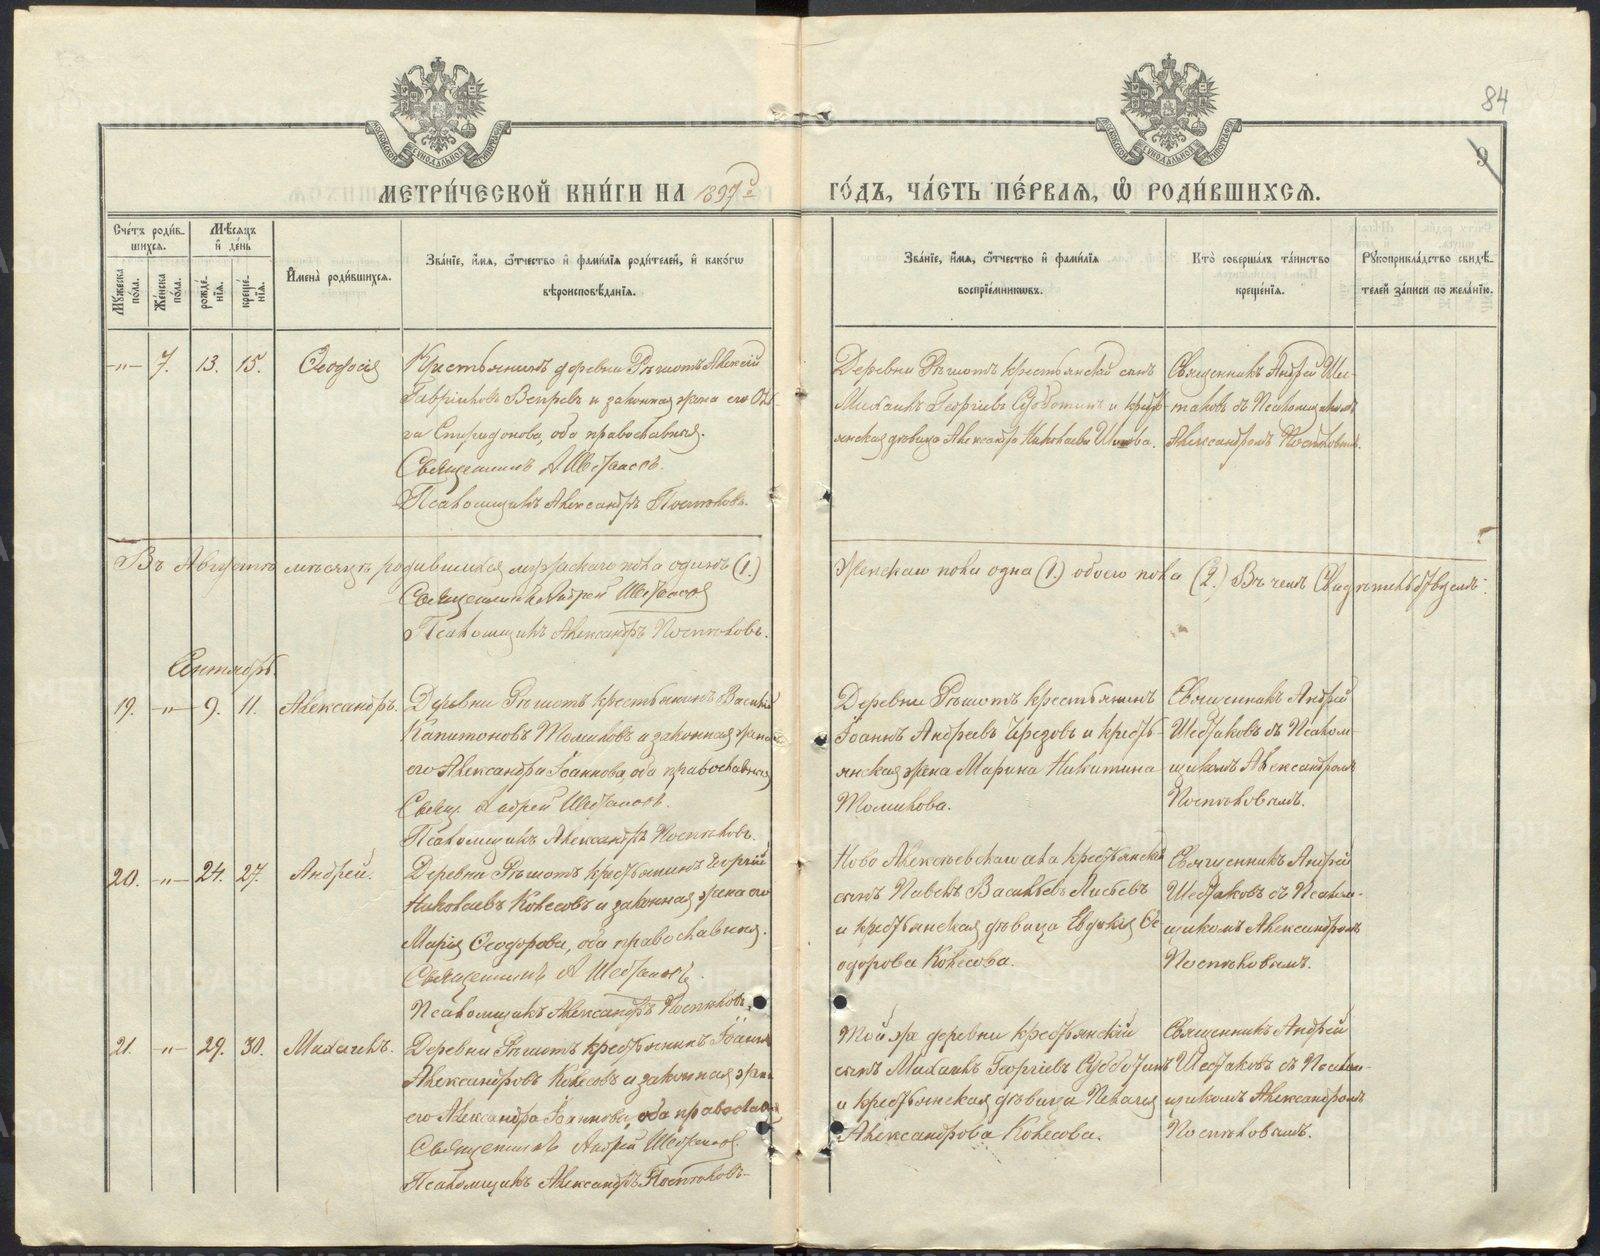 84
9
МЕТРИ́ЧЕСКОЙ КНИ́ГИ НА 1897й
ГО́ДЪ, ЧА́СТЬ ПЕ́РВАЯ, Ѽ РОДИ́ВШИХСЯ.
Сче́тъ роди́вшихся.
Мѣ́сяцъ и де́нь
Му́жеска по́ла.
Же́нска по́ла.
рожде́нїя.
креще́нїя.
И҆мена̀ роди́вшихся.
Зва́нїе, и҆́мя, ѻ҆́тчество и҆ фами́лїя роди́телей, и҆ како́гѡ
вѣроисповѣ́данїя.
Зва́нїе, и҆́мя, ѻ҆́тчество и҆ фами́лїя
воспрїе́мникѡвъ.
Кто̀ соверша́лъ та́инство
креще́нїя.
Рꙋкоприкла́дство свидѣ́-
телей за́писи по жела́нїю.
-"- 7. 13. 15. Ѳеодосія
Крестьянинъ деревни Рѣшотъ Алексій
Гавріиловъ Вепревъ и законная жена его Оль-
га Спиридонова, оба православныя.
Священникъ А Шестаковъ.
Псаломщикъ Александръ Постоковъ.
Деревни Рѣшотъ крестьянскій сынъ
Михаилъ Георгіевъ Субботинъ и кресть-
янская дѣвица Александра Николаева
Священникъ Андрей Шес-
таковъ съ Псаломщикомъ
Александромъ
Въ Августѣ мѣсяцѣ родившихся мужскаго пола одинъ (1.)
женскаго пола одна (1.) обоего пола (2.) Въ чемъ Свидѣтельствуемъ:
Священникъ Андрей Шестаковъ
Псаломщикъ Александръ
Сентябрь.
19. -"- 9. 11. Александръ.
Деревни Рѣшотъ крестьянинъ Василій
Капитоновъ Толмаковъ и законная жена
его Александра Іоаннова, оба православныя
Свящ. Андрей Шестаковъ.
Псаломщикъ Александръ
Деревни Рѣшотъ крестьянинъ
Іоаннъ Андреевъ и кресть-
янская жена Марина Никитина
Священникъ Андрей
Шестаковъ съ Псалом-
щикомъ Александромъ
20. -"- 24. 27. Андрей.
Деревни Рѣшотъ крестьянинъ Георгій
Николаевъ Колесовъ и законная жена его
Марія Ѳеодорова, оба православныя.
Священникъ А Шестаковъ.
Псаломщикъ Александръ
Ново Алексѣевскаго села крестьянскій
сынъ Павелъ Васильевъ
и крестьянская дѣвица Евдокія Ѳе-
одорова Колесова.
Священникъ Андрей
Шестаковъ съ Псалом-
щикомъ Александромъ
21. -"- 29. 30. Михаилъ.
Деревни Рѣшотъ крестьянинъ Іоаннъ
Александровъ Колесовъ и законная жена
его Александра Іоаннова, оба православныя
Священникъ Андрей Шестаковъ.
Псаломщикъ Александръ
Той же деревни крестьянскій
сынъ Михаилъ Георгіевъ Субботинъ
и крестьянская дѣвица Пелагія
Александрова Колесова.
Священникъ Андрей
Шестаковъ съ Псалом-
щикомъ Александромъ